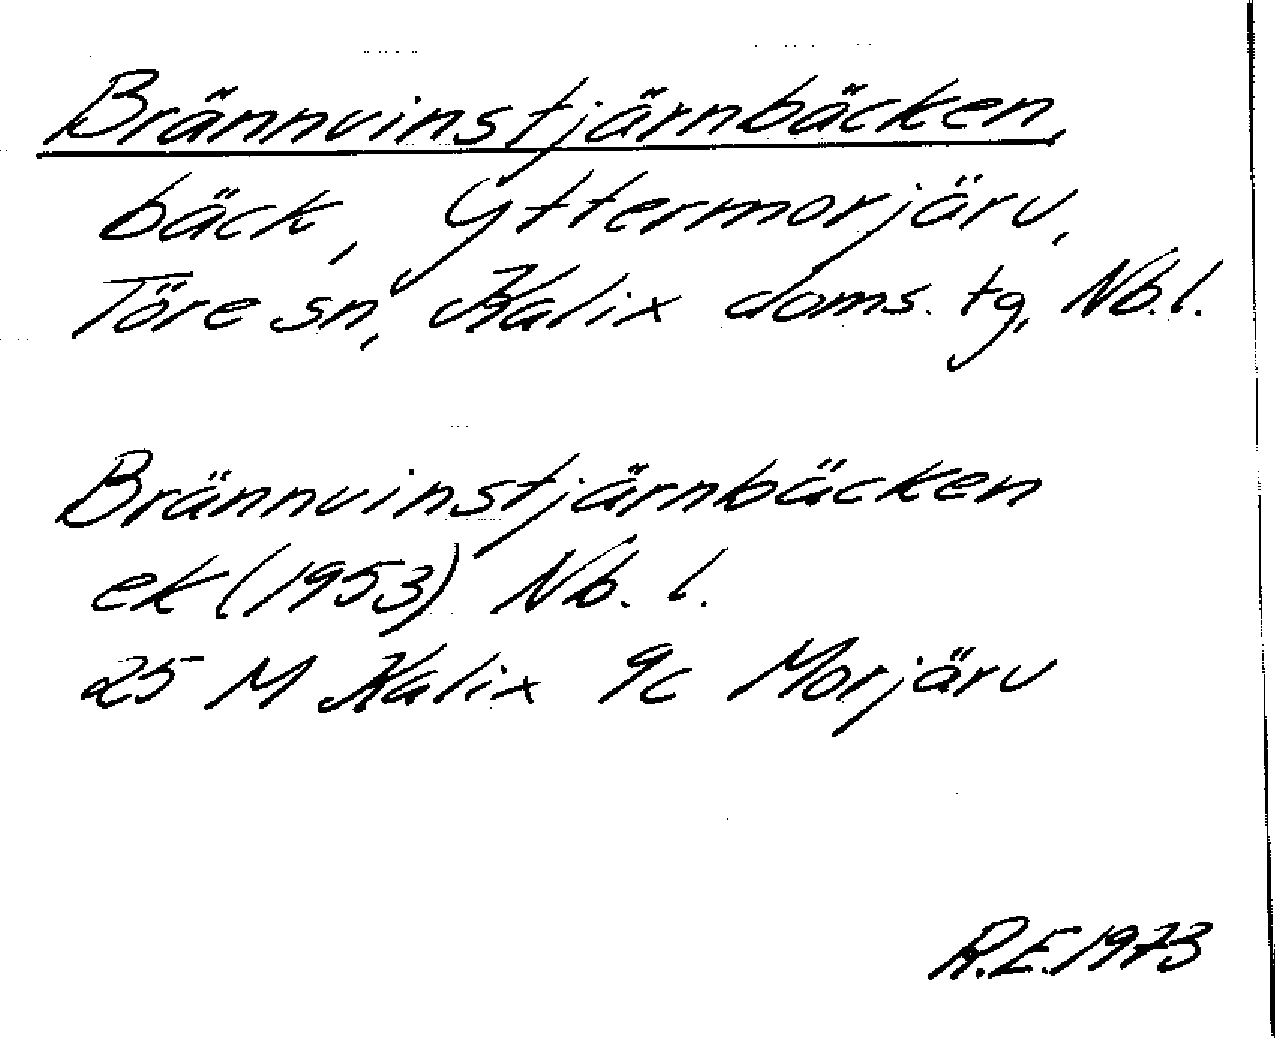 Brännvinstjärnbäcken,
bäck, Yttermorjärv,
Töre sn, Kalix doms. tg, Nb.l.
Brännvinstjärnbäcken
ek (1953) Nb. l.
25 M Kalix 9c Morjärv
R.E. 1973